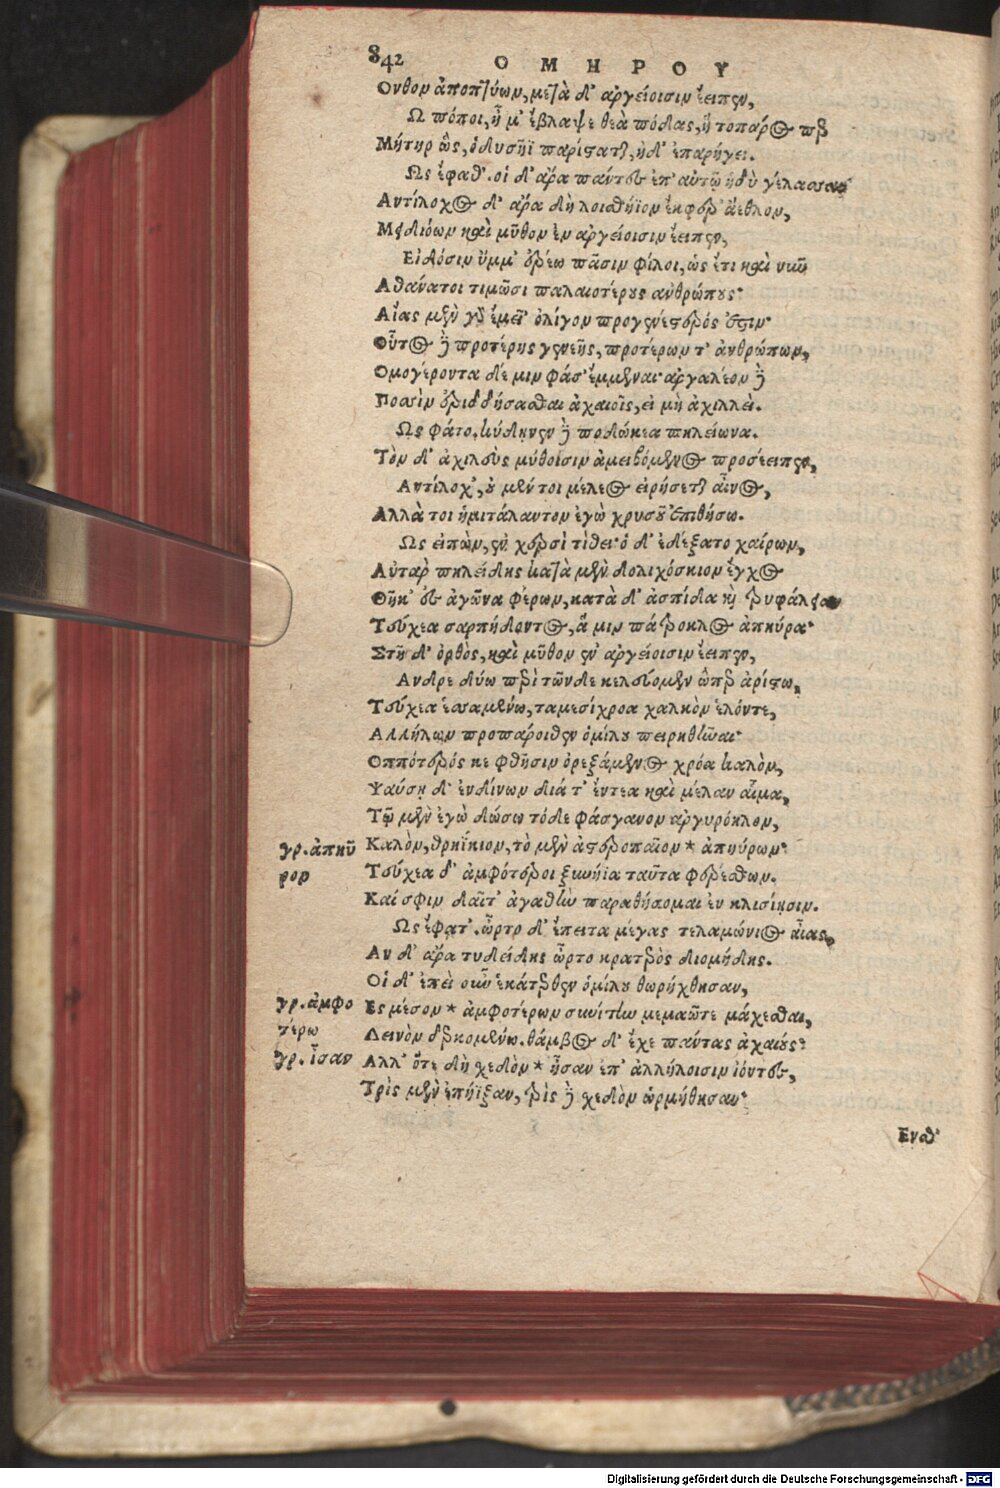 842
ΟΜΗΡΟΥ
Ονθον ἀποπτύων, μετὰ δ' ἀργείοισιν ἔειπεν,
Ω πόποι, ἦ μ' ἔβλαψε θεὰ πόδας, ἣ τοπάρος περ
Μήτηρ ὣς, ὀδυσῆϊ παρίσταται, ἠδ' ἐπαρήγει.
Ως ἔφαθ'. οἱ δ' ἄρα πάντες ἐπ' αὐτῷ ἡδὺ γέλασσαν·
Αντίλοχος δ' ἄρα δὴ λοισθήϊον ἔκφερ' ἄεθλον,
Μειδιόων καὶ μῦθον ἐν ἀργείοισιν ἔειπεν,
Εἰδόσιν ὔμμ' ἐρέω πᾶσιν φίλοι, ὡς ἔτι καὶ νῦν
Αθάνατοι τιμῶσι παλαιοτέρους ἀνθρώπους·
Αἴας μὲν γὰρ ἐμεῖ' ὀλίγον προγενέστερός ἐστιν·
Οὗτος δὲ προτέρης γενεῆς, προτέρων τ' ἀνθρώπων,
Ομογέροντα δέ μιν φάσ' ἔμμεναι· ἀργαλέον δὲ
Ποσσὶν ἐριδδήσασθαι ἀχαιοῖς, εἰ μὴ ἀχιλλεῖ.
Ως φάτο. κύδηνεν δὲ ποδώκεα πηλείωνα.
Τὸν δ' ἀχιλεὺς μύθοισιν ἀμειβόμενος προσέειπεν,
Αντίλοχ', οὐ μέν τοι μέλεος εἰρήσεται αἶνος,
Αλλὰ τοι ἡμιτάλαντον ἐγὼ χρυσοῦ ἐπιθήσω.
Ως εἰπὼν, ἐν χερσὶ τίθει· ὁ δ' ἐδέξατο χαίρων,
Αὐτὰρ πηλείδης κατὰ μὲν δολιχόσκιον ἔγχος
Θῆκ' ἐς ἀγῶνα φέρων, κατὰ δ' ἀσπίδα καὶ τρυφάλειαν
Τεύχεα σαρπήδοντος, ἅ μιν πάτροκλος ἀπηύρα·
Στῆ δ' ὀρθὸς, καὶ μῦθον ἐν ἀργείοισιν ἔειπεν,
Ανδρε δύω περὶ τῶνδε κελεύομεν ὥπερ ἀρίστω,
Τεύχεα ἑσσαμένω, ταμεσίχροα χαλκὸν ἑλόντε,
Αλλήλων προπάροιθεν ὁμίλου πειρηθῆναι·
Οππότερός κε φθῇσιν ὀρεξάμενος χρόα καλὸν,
Ψαύσῃ δ' ἐνδίνων διά τ' ἔντεα καὶ μέλαν αἷμα,
Τῷ μὲν ἐγὼ δώσω τόδε φάσγανον ἀργυρόηλον,
γρ. ἀπηύ Καλὸν, θρηΐκιον, τὸ μὲν ἀστεροπαῖον * ἀπηύρων·
ρον Τεύχεα δ' ἀμφότεροι ξυνήϊα ταῦτα φερέσθων.
Καί σφιν δαῖτ' ἀγαθὴν παραθήσομαι ἐν κλισίῃσιν.
Ως ἔφατ'. ὦρτο δ' ἔπειτα μέγας τελαμώνιος αἴας,
Αν δ' ἄρα τυδείδης ὦρτο κρατερὸς διομήδης.
Οἱ δ' ἐπεὶ οὖν ἑκάτερθεν ὁμίλου θωρήχθησαν,
γρ. ἀμφο Ες μέσον * ἀμφοτέρων συνίτην μεμαῶτε μάχεσθαι,
τέρω Δεινὸν δερκομένω. θάμβος δ' ἔχε πάντας ἀχαιούς·
γρ. ἴσαν Αλλ' ὅτε δὴ σχεδὸν * ἦσαν ἐπ' ἀλλήλοισιν ἰόντες,
Τρὶς μὲν ἐπήϊξαν, τρὶς δὲ σχεδὸν ὡρμήθησαν·
Ενθ'
Digitalisierung gefördert durch die Deutsche Forschungsgemeinschaft - DFG